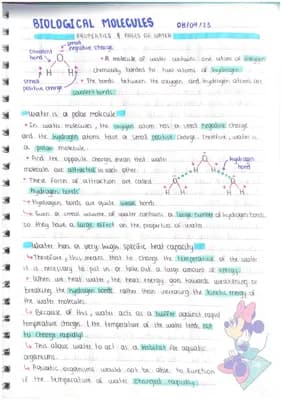 BIOLOGICAL MOLECULES 08/09/23
PROPERTIES & ROLES OF WATER
small
negative charge
covalent
bond
O
H H
small
positive charge
• A molecule of water contains one atom of oxygen
chemically bonded to two atoms of hydrogen.
• The bonds between the oxygen and hydrogen atoms are
covalent bonds.
Water is a polar molecule
• In water molecules, the oxygen atom has a small negative charge
and the hydrogen atoms have a small positive charge. Therefore, water is
a polar molecule.
• And the opposite charges mean that water
molecules are attracted to each other.
• These forces of attraction are called
hydrogen bonds
hydrogen
bond
↳ Hydrogen bonds are quite weak bonds.
↳ Even a small volume of water contains a large number of hydrogen bonds
so they have a large effect on the properties of water.
Water has a very high specific heat capacity
↳ Therefore, this means that to change the temperature of the water
it is necessary to put in or take out a large amount of energy.
• When we heat water, the heat energy goes towards weakening or
breaking the hydrogen bonds rather than increasing the kinetic energy of
the water molecules.
↳ Because of this, water acts as a buffer against rapid
temperature changes. (the temperature of the water tends not
to change rapidly)
↳ This allows water to act as a habitat for aquatic
organisms.
↳ Aquatic organisms would not be able to function
if the temperature of water changed rapidly.